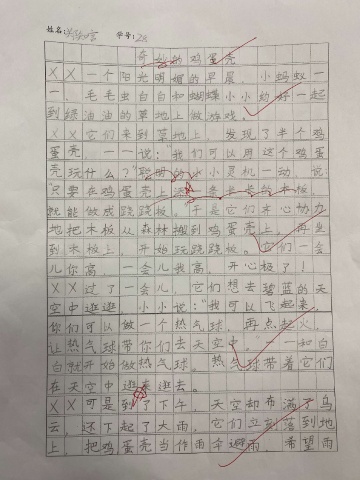 姓名: 学号: 28
奇妙的鸡蛋壳
XX一个阳光明媚的早晨，小蚂蚁一
一，毛毛虫白白和蝴蝶小小约好一起
到绿油油的草地上做游戏。
XX它们来到草地上，发现了半个鸡
蛋壳，一一说："我们可以用这个鸡蛋
壳玩什么？"聪明的小小灵机一动，说：
"只要在鸡蛋壳上添一条长长的木板，
就能做成跷跷板。于是它们齐心协力
地把木板从森林搬到鸡蛋壳上，再坐
到木板上，开始玩跷跷板。它们一会
儿你高，一会儿我高，开心极了！
XX过了一会儿，它们想去碧蓝的天
空中逛逛，小小说："我可以飞起来，
你们可以做一个热气球，再点起火，
让热气球带你们去天空中。"一一和白
白就开始做热气球。热气球带着它们
在天空中逛来逛去。
XX可是到了下午，天空却布满了乌
云，还下起了大雨，它们立刻落到地
上，把鸡蛋壳当作雨伞避雨，希望雨